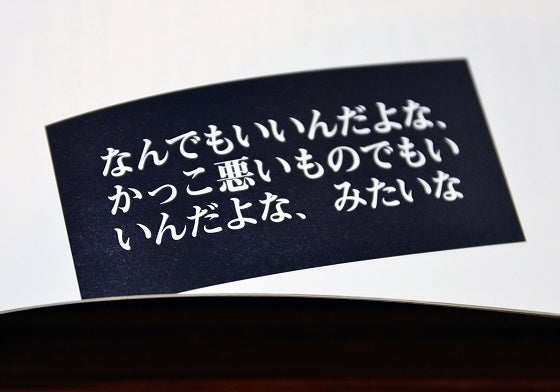 なんでもいいんだよな、
かっこ悪いものでもい
いんだよな、みたいな